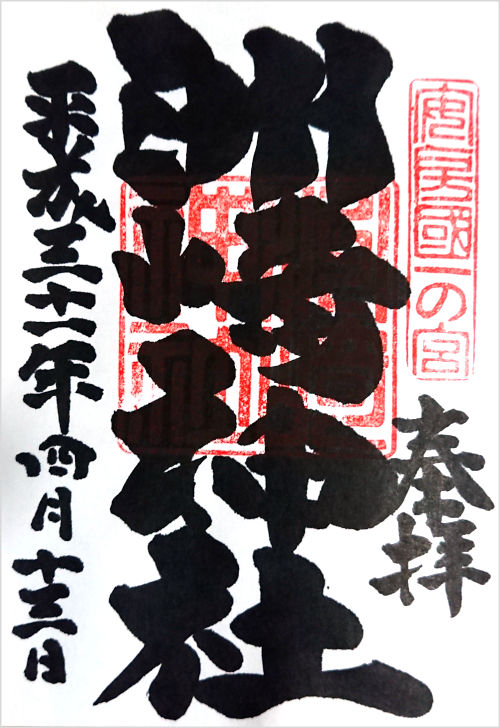 安房國一の宮
奉拝
洲崎神社
平成三十一年四月十三日